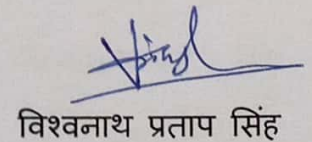 विश्वनाथ प्रताप सिंह